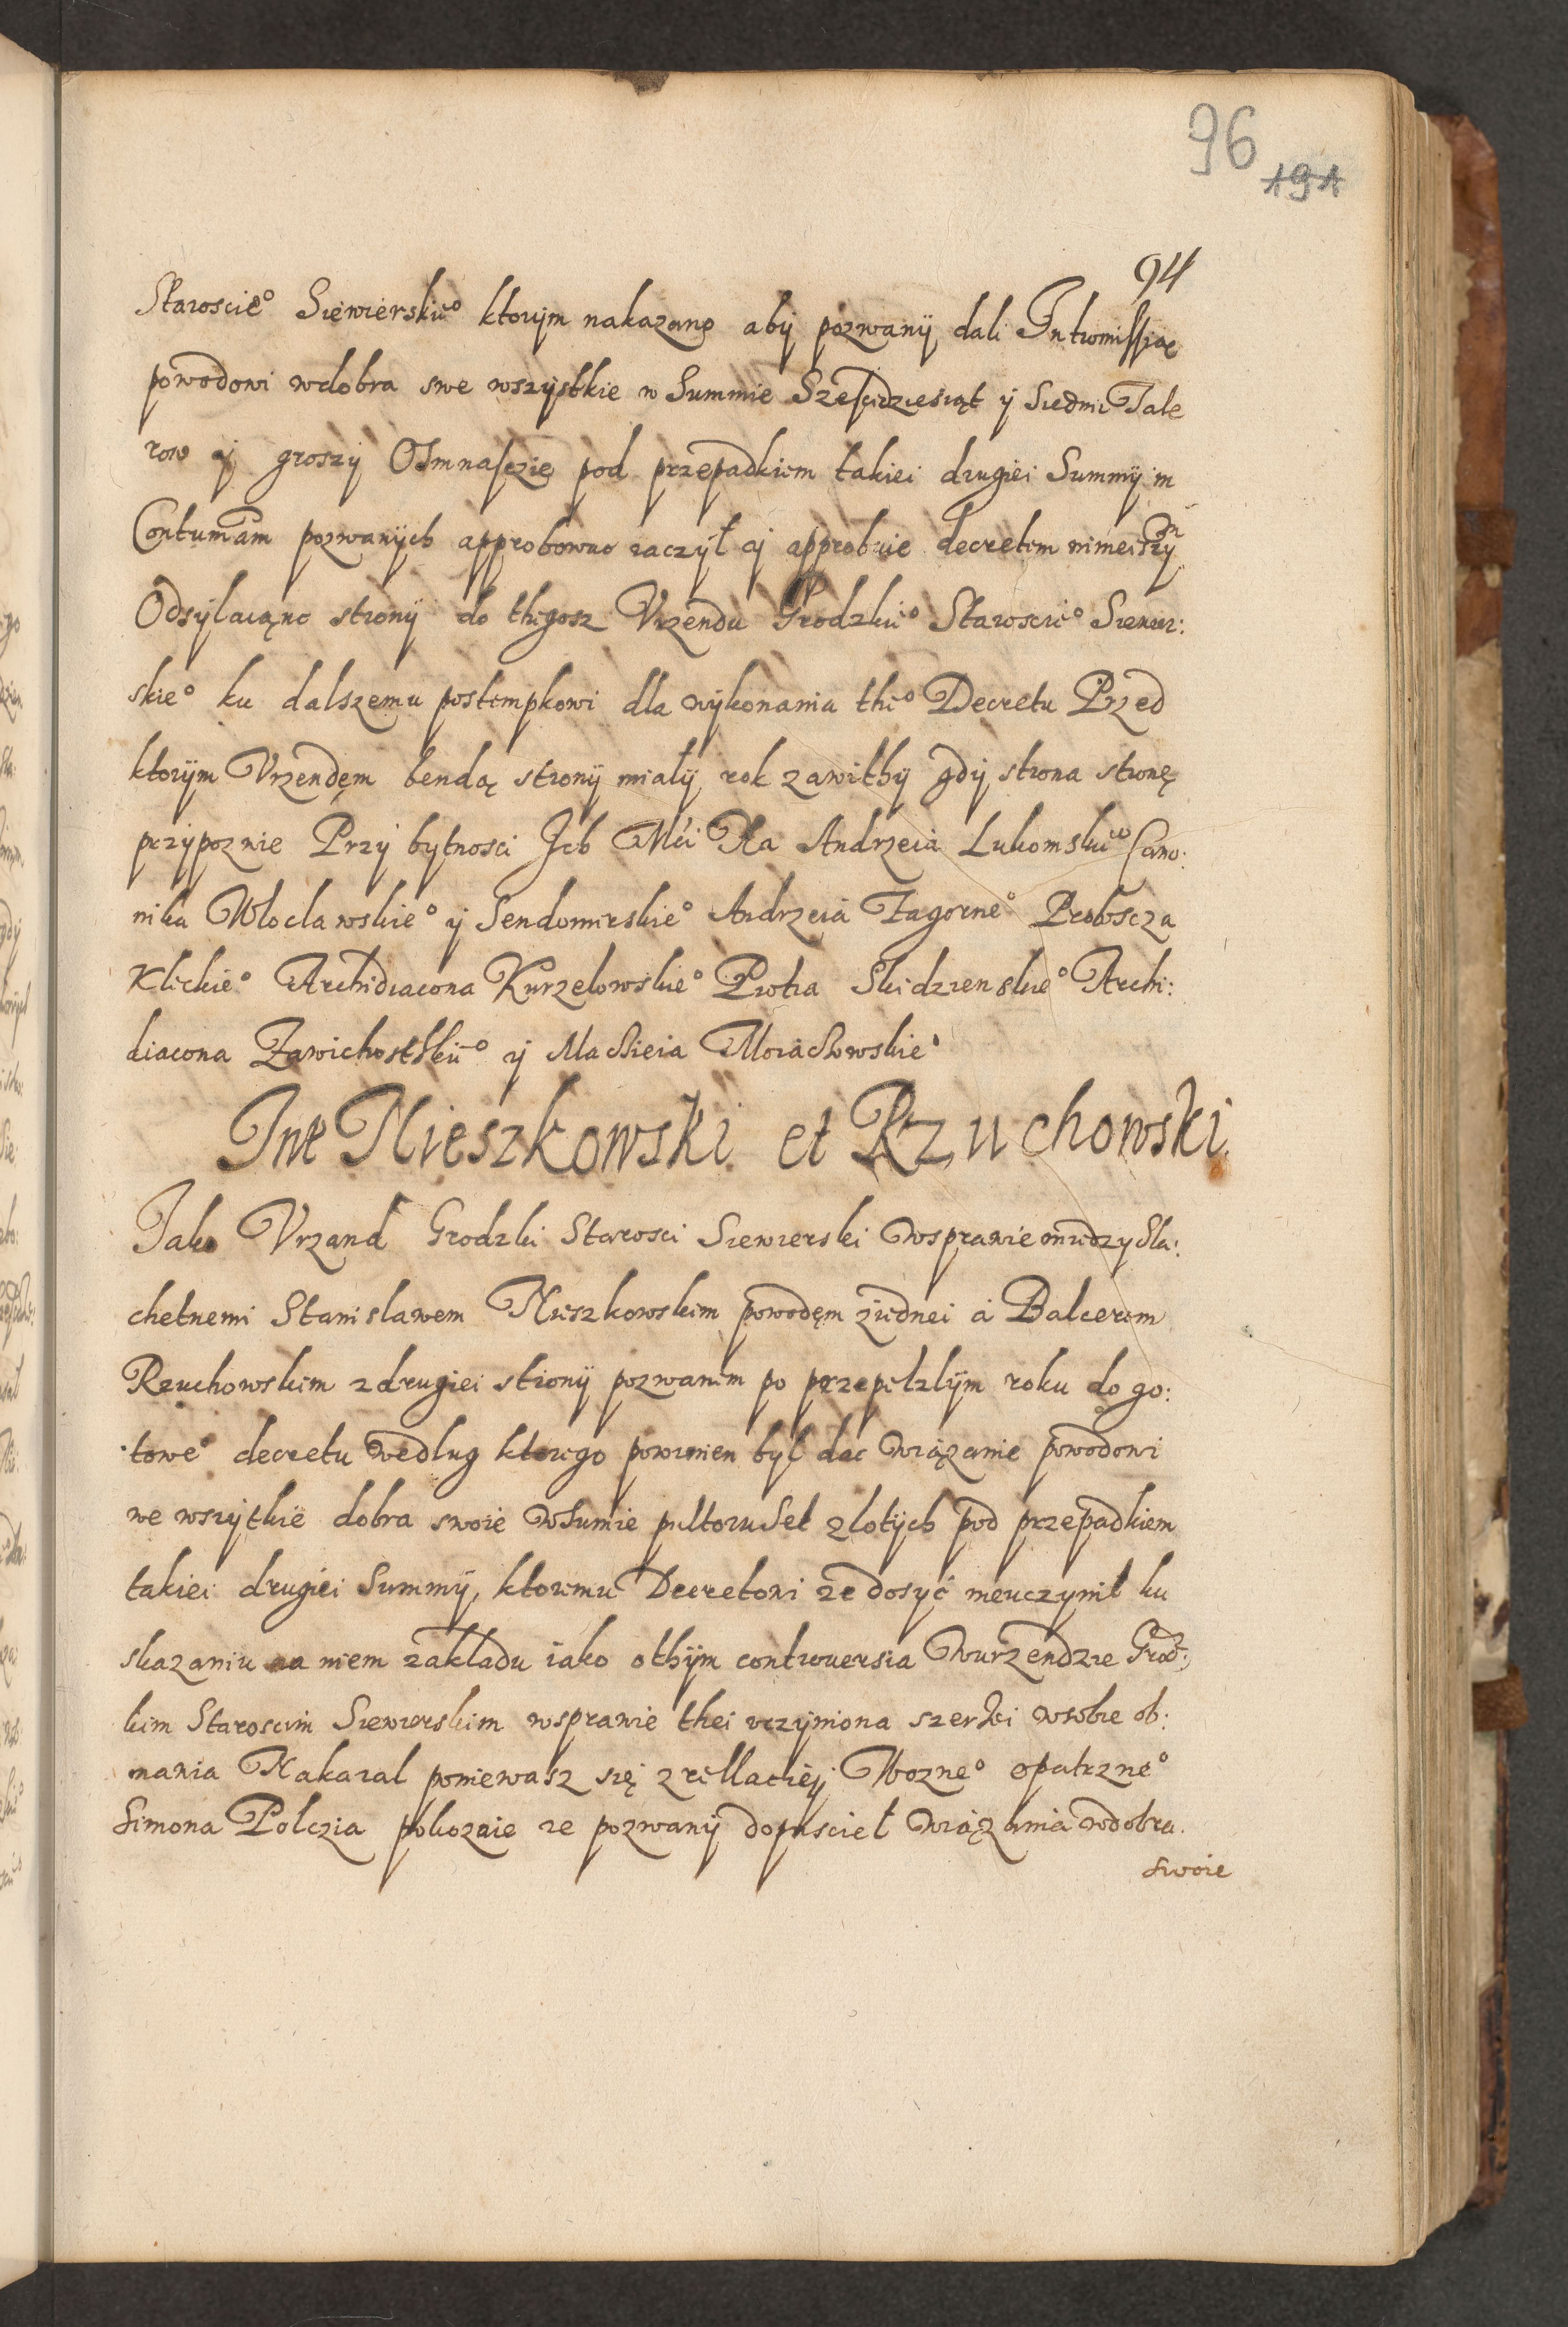 96
191
94
Staroscie° Siewierskie° ktorÿm nakazano abÿ pozwanÿ dali Intromissÿą
powodowi w dobra swe wszÿstkie w Summie Sześćdziesiąt ÿ Siedmi Tale
row ÿ groszÿ Osmnasczie pod przepadkiem takiei drugiei Summÿ in
Contumām pozwanÿch approbowac raczÿł ÿ approbuie decretem ninieiszÿm
Odsÿłaiąnc stronÿ do thegosz Vrzendu Grodzkie° Staroscie° Siewier:
skie° ku dalszemu postempkowi dla wÿkonania the° Decretu Przed
ktorÿm Vrzendęm bendą stronÿ miałÿ rok zawithÿ gdÿ strona stronę
przÿpoznie Przÿ bÿtnosci Jch Mći Xa Andrzeia Lukomskie° Cano:
nika Włocławskie° ÿ Sendomirskie° Andrzeia Zagorne° Probscza
Klickie° Archidiacona Kurzelowskie° Piotra Skidzienskie° Archi:
diacona Zawichostskie° ÿ Macieia Morachowskie°
Int Mieszkowski et Rzuchowski.
Jako Vrzand Grodzki Starosci Siewierski w sprawie miedzy Sla:
chetnemi Stanislawem Mieszkowskim powodęm ziednei á Balcerem
Rzuchowskim z drugiei stronÿ pozwanem po przepełzłÿm roku do go:
towe° decretu według ktorego powinien bÿł dac wiązanie powodowi
we wszÿtkie dobra swoie w sumie pułtoruset złotÿch pod przepadkiem
takiei drugiei Summÿ, ktoremu Decretowi ze dosÿć nieuczÿnił ku
skazaniu na niem zakładu iako o thÿm controuersia w urzendzie Grodz:
kim Staroscim Siewierskim w sprawie thei uczÿniona szerzei w sobie ob:
mawia Nakazał poniewasz się z rellaciÿ Wozne° opatrzne°
Simona Polczia pokozuie ze pozwanÿ dopuscieł wiązania w dobra
swoie